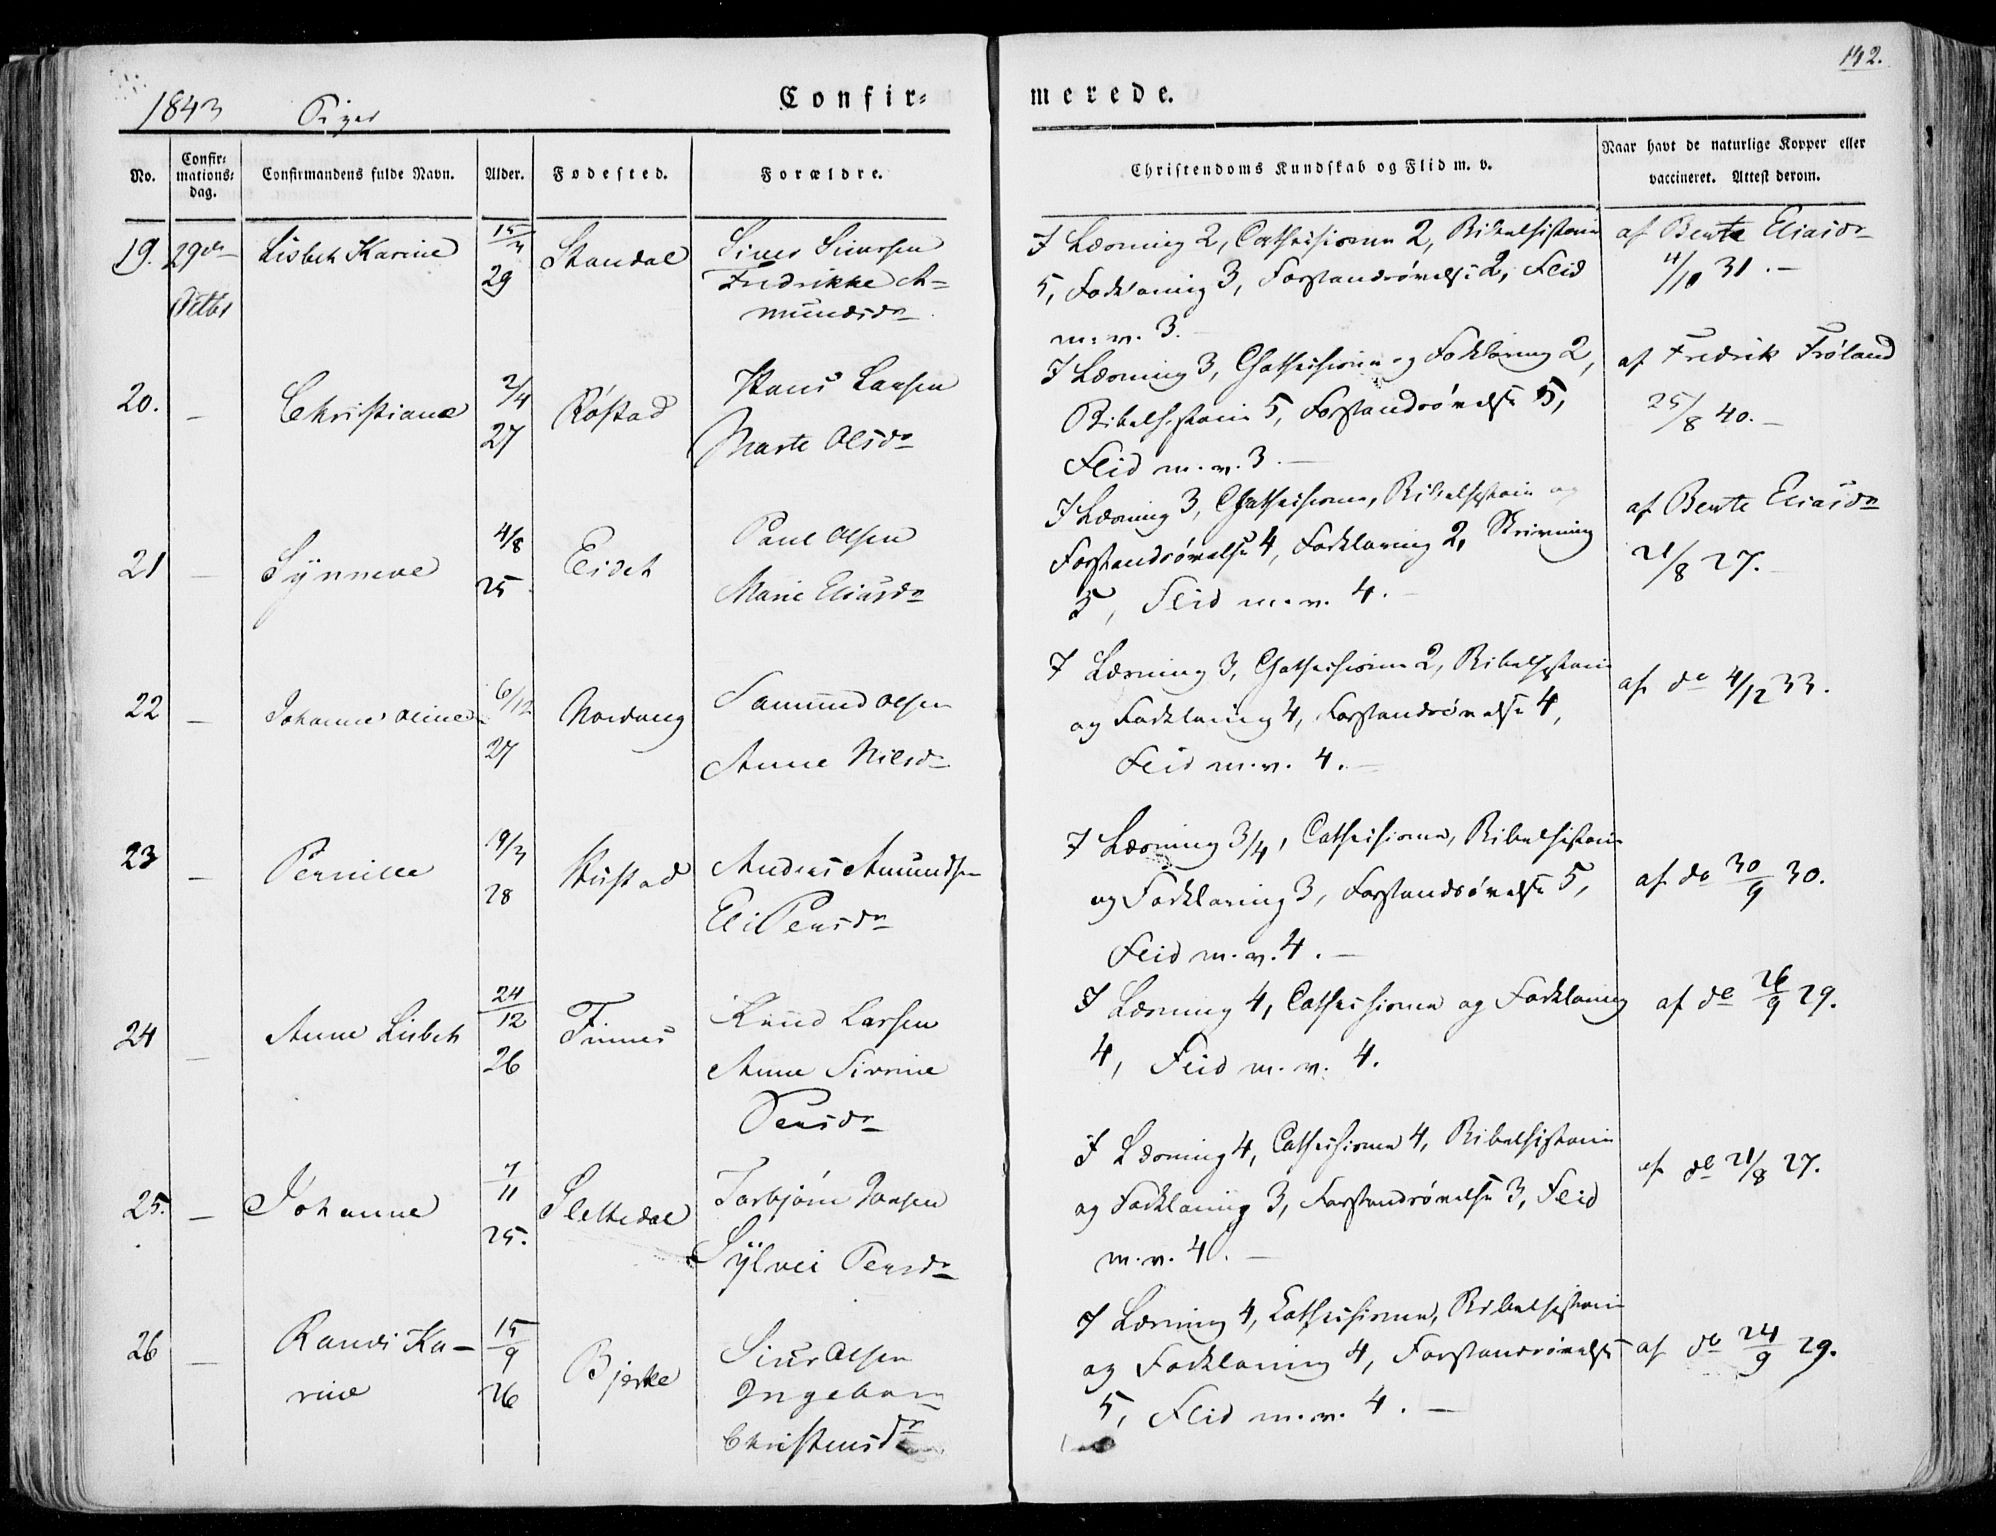 142.
1843 Piger
Confir=
merede.
No.
Confir=
mations=
dag.
Confirmandens fulde Navn.
Alder.
Fødested.
Forældre.
Christendoms Kundskab og Flid m. v.
Naar havt de naturlige Kopper eller
vaccineret. Attest derom.
19. 29de Lisbeth Karine 15/3 Standal Siver Siversen
Octbr 29 Fredrikke A=
mundsdr
I Læsning 2, Cathechismen 2, Bibelhistorie
5, Forklaring 3, Forstandsøvelse 2, Flid
m. v. 3.
af Bente Eliasdr
4/10 31.
20. — Christiane 2/4 Røstad Hans Larsen
27 Marte Olsdr
I Læsning 3, Cathechismen og Forklaring 2,
Bibelhistorie 5, Forstandsøvelse 5,
Flid m. v. 3. —
af Fredrik Frøland
25/8 40. —
21 — Synneve 4/8 Eidet Paul Olsen
25 Marie Eliasdr
I Læsning 3, Cathechismen, Bibelhistorie og
Forstandsøvelse 4, Forklaring 2, Skrivning
5, Flid m. v. 4. —
af Bente Eliasdr
21/8 27.
22 — Johanne Oline 6/12 Nordvug Samund Olsen
27 Anne Nilsdr
I Læsning 3, Cathechismen 2, Bibelhistorie
og Forklaring 4, Forstandsøvelse 4,
Flid m. v. 4. —
af do 4/12 33.
23 — Pernille 9/3 Hustad Andreas Amundsen
28 Eli Persdr
I Læsning 3/4, Cathechismen, Bibelhistorie
og Forklaring 3, Forstandsøvelse 5,
Flid m. v. 4. —
af do 30/9 30.
24 — Anne Lisbeth 24/12 Finnes Knud Larsen
26 Anne Sirine
Persdr
I Læsning 4, Cathechismen og Forklaring
4, Flid m. v. 4.
af do 26/9 29.
25. — Johanne 7/11 Slettedal Torbjørn Jonsen
25. Sylvei Persdr
I Læsning 4, Cathechismen 4, Bibelhistorie
og Forklaring 3, Forstandsøvelse 3, Flid
m. v. 4. —
af do 21/8 27.
26 — Randi Ka- 15/9 Bjerke Siur Olsen
rine 26 Ingeborg
Christensdr
I Læsning 4, Cathechismen, Bibelhistorie
og Forklaring 4, Forstandsøvelse
5, Flid m. v. 4. —
af do 24/9 29.